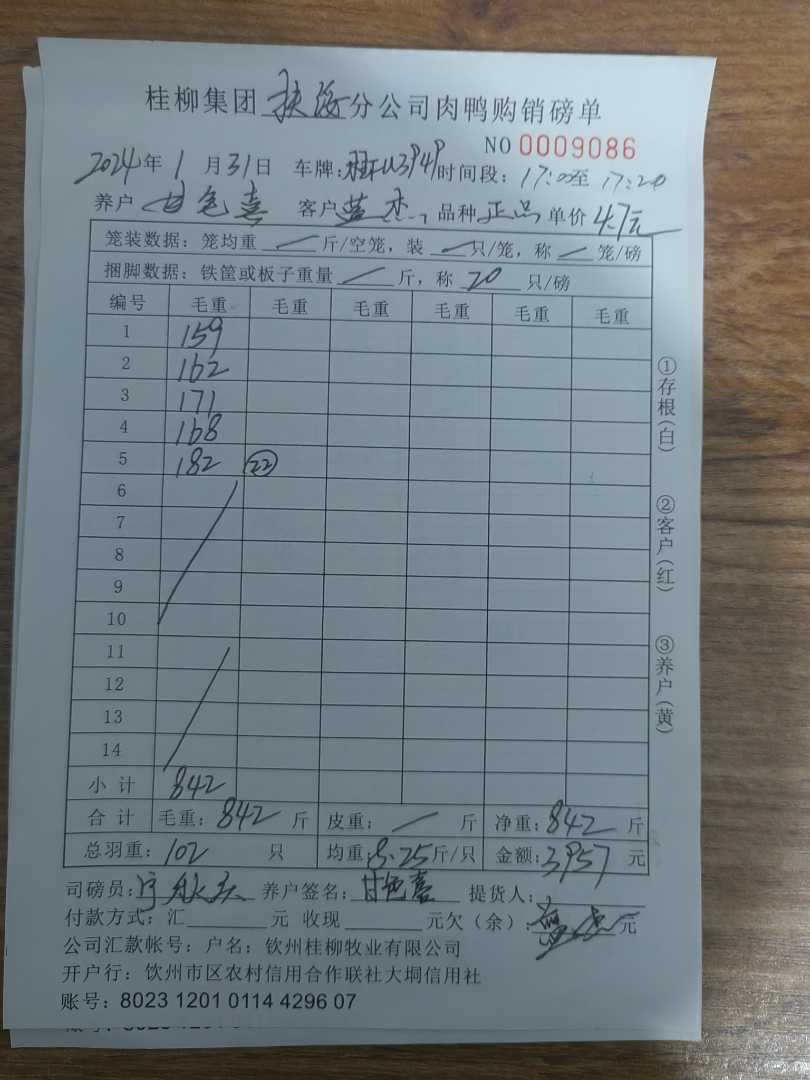 桂柳集团 扶海 分公司肉鸭购销磅单
NO 0009086
2024年 1 月 31 日 车牌: 时间段: 17:0 至 17:20
养户 甘色喜 客户 蓝杰 品种 正品 单价 4.7元
笼装数据: 笼均重 / 斤/空笼, 装 / 只/笼, 称 / 笼/磅
捆脚数据: 铁筐或板子重量 / 斤, 称 20 只/磅
编号 毛重 毛重 毛重 毛重 毛重 毛重
1 159
2 162
3 171
4 168
5 182 22
6
7
8
9
10
11
12
13
14
小计 842
合计 毛重: 842 斤 皮重: / 斤 净重: 842 斤
总羽重: 102 只 均重: 8.25 斤/只 金额: 3957 元
司磅员: 养户签名: 甘色喜 提货人:
付款方式: 汇 元 收现 元欠(余): 元
公司汇款帐号: 户名: 钦州桂柳牧业有限公司
开户行: 钦州市区农村信用合作联社大垌信用社
账号: 8023 1201 0114 4296 07
①存根(白)
②客户(红)
③养户(黄)